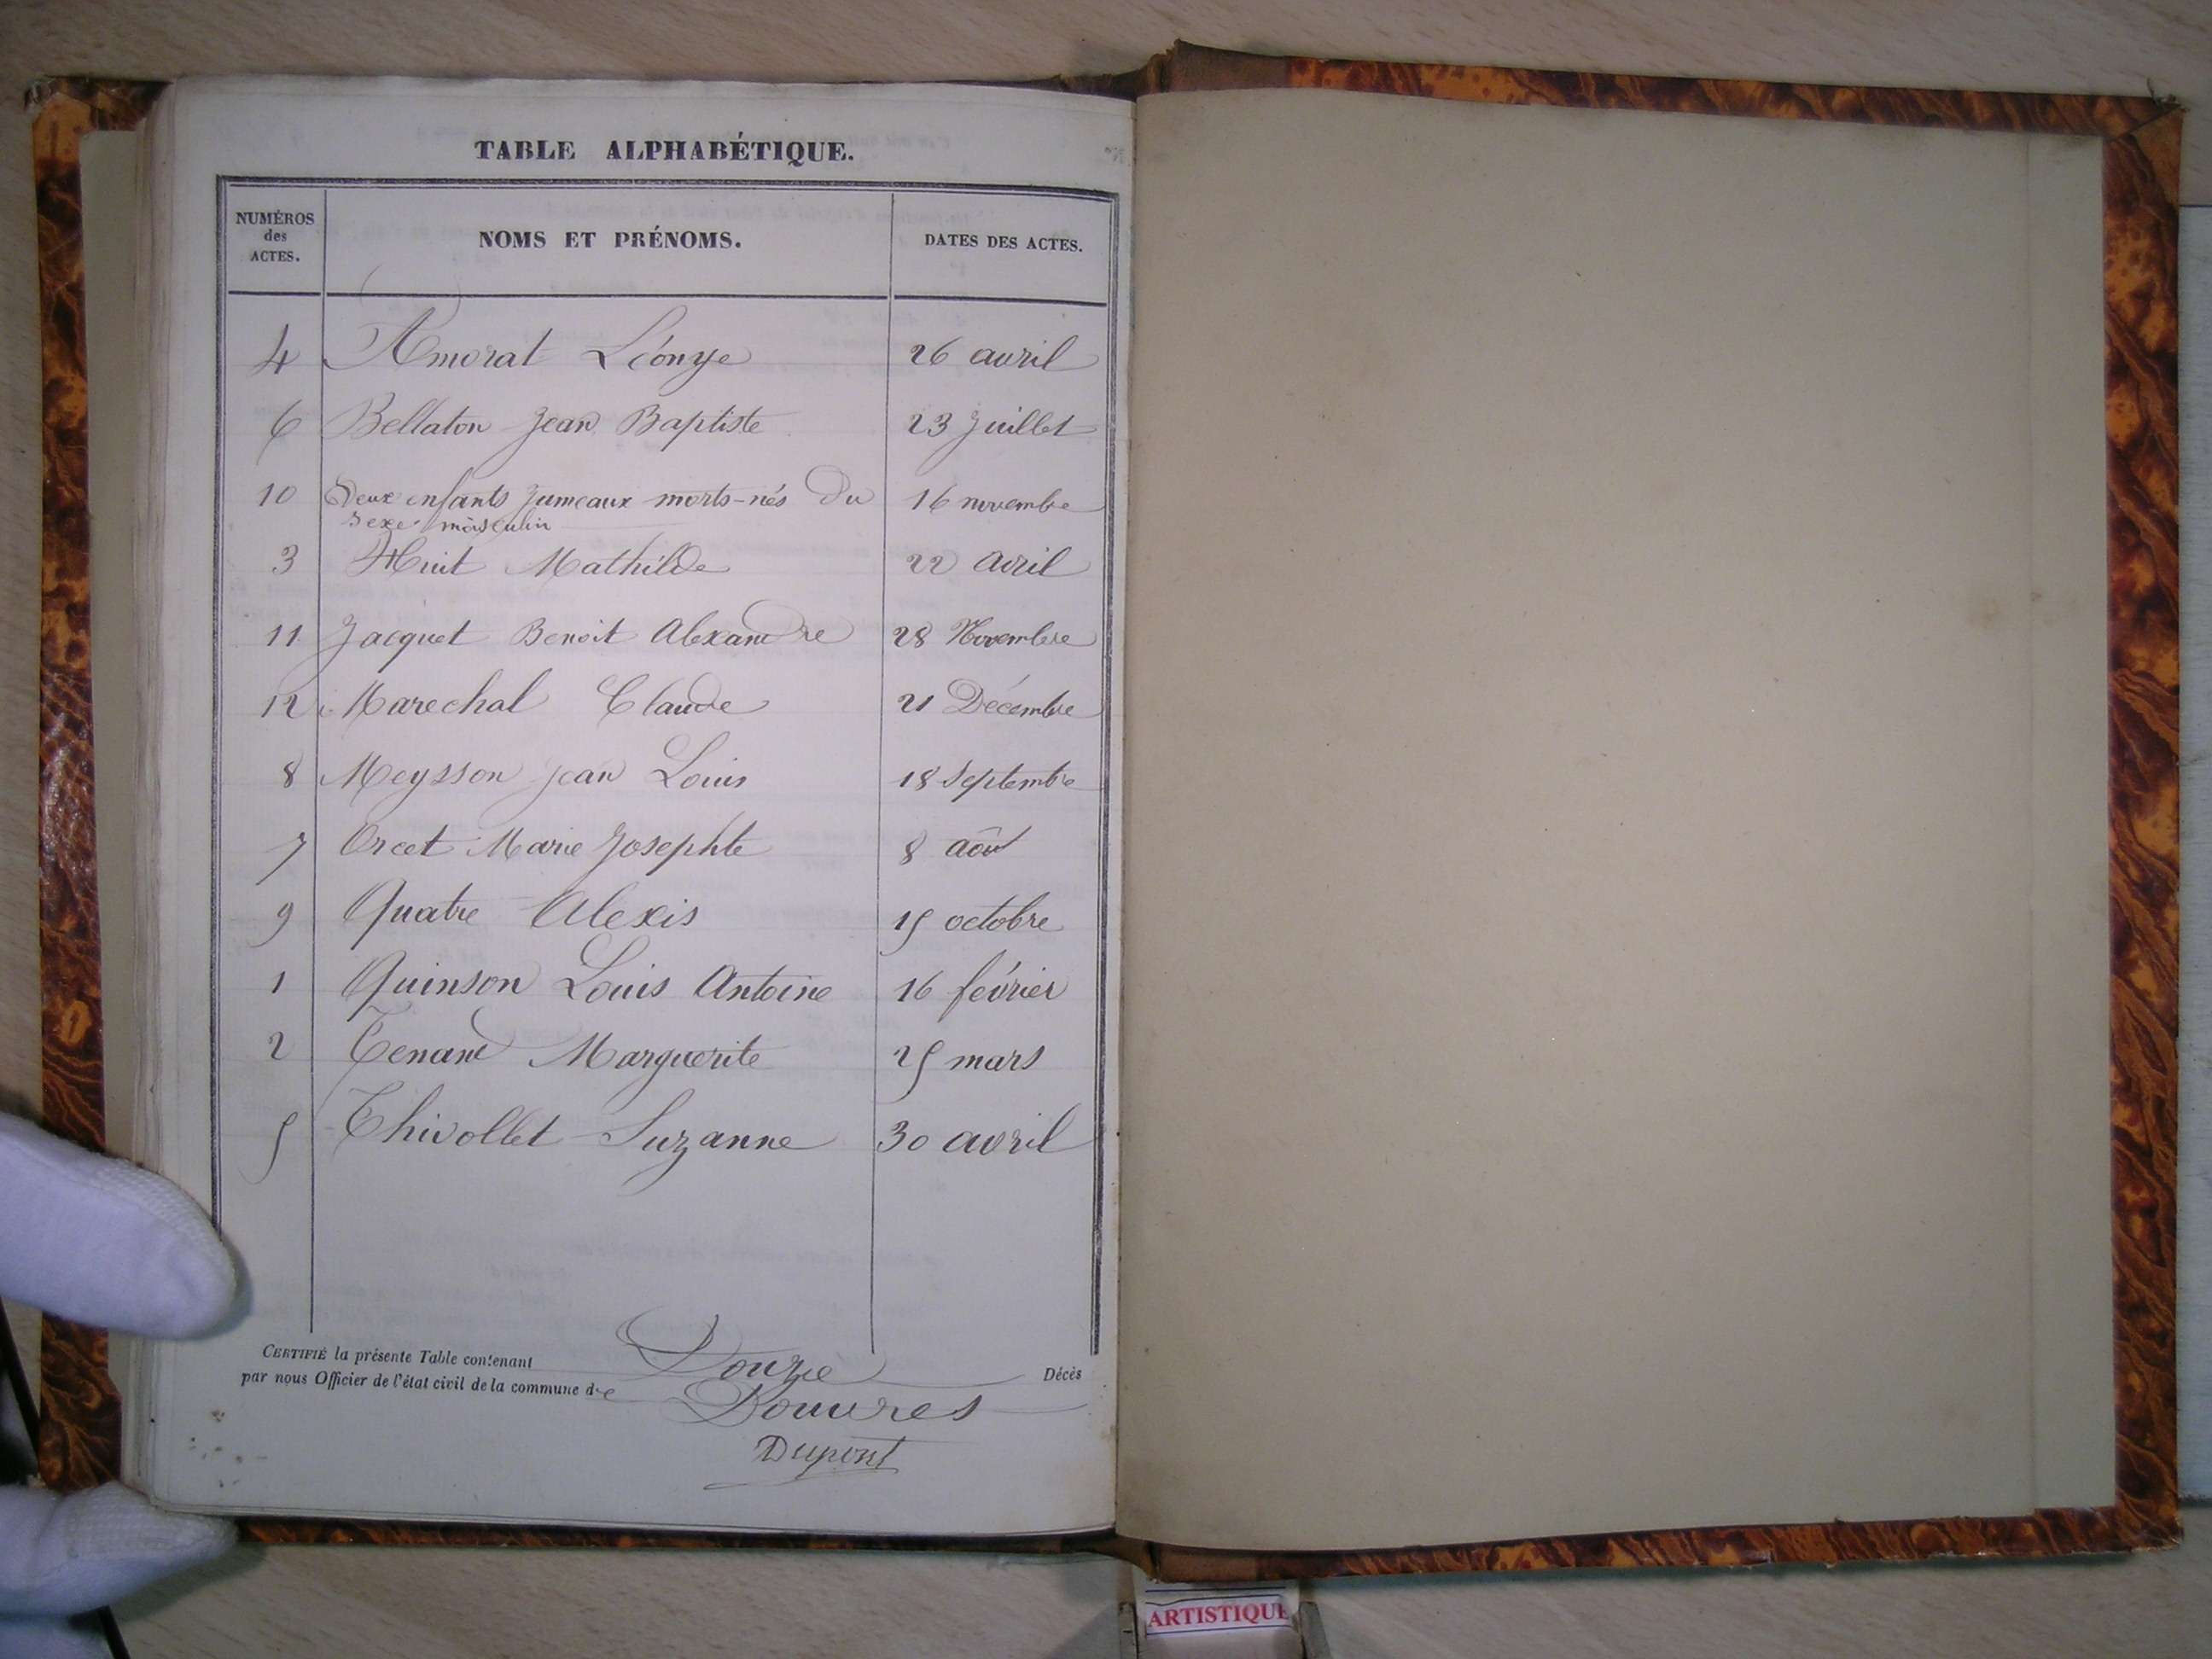 TABLE ALPHABÉTIQUE.
NUMÉROS des ACTES. NOMS ET PRÉNOMS. DATES DES ACTES.
4 Amorat Léonye 26 avril
6 Bellaton Jean Baptiste 23 Juillet
10 Deux enfants Jumeaux morts-nés Du 16 novembre
Sexe masculin
3 Huit Mathilde 22 avril
11 Jacquet Benoit Alexandre 28 Novembre
12 Marechal Claude 21 Décembre
8 Meysson Jean Louis 18 Septembre
7 Orcet Marie Josephte 8 aôut
9 Quatre Alexis 15 octobre
1 Quinson Louis Antoine 16 février
2 Tenand Marguerite 25 mars
5 Thivollet Suzanne 30 avril
CERTIFIÉ la présente Table contenant Douze Décès
par nous Officier de l'état civil de la commune de Douvres
Dupont
ARTISTIQUE